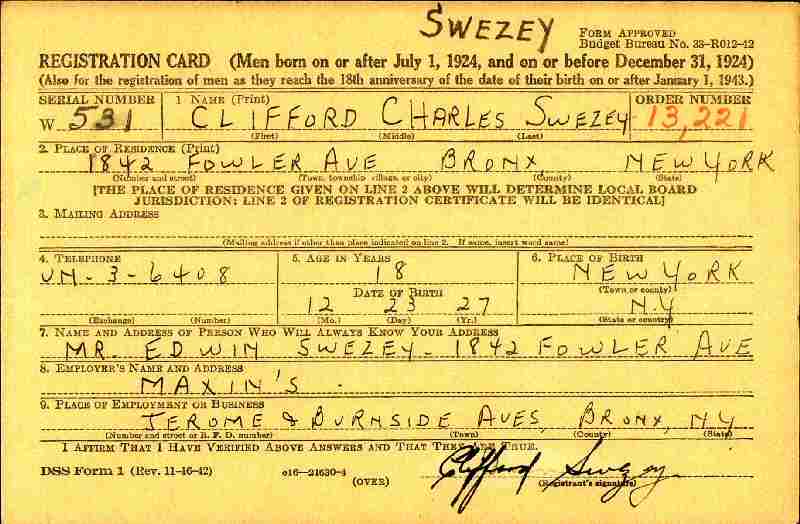 SWEZEY
FORM APPROVED
Budget Bureau No. 33-R012-42
REGISTRATION CARD (Men born on or after July 1, 1924, and on or before December 31, 1924)
(Also for the registration of men as they reach the 18th anniversary of the date of their birth on or after January 1, 1943.)
SERIAL NUMBER 1 NAME (Print) ORDER NUMBER
W 531 CLIFFORD CHARLES SWEZEY 13,221
(First) (Middle) (Last)
2. PLACE OF RESIDENCE (Print)
1842 FOWLER AVE BRONX NEW YORK
(Number and street) (Town, township, village, or city) (County) (State)
[THE PLACE OF RESIDENCE GIVEN ON LINE 2 ABOVE WILL DETERMINE LOCAL BOARD
JURISDICTION; LINE 2 OF REGISTRATION CERTIFICATE WILL BE IDENTICAL]
3. MAILING ADDRESS
(Mailing address if other than place indicated on line 2. If same, insert word same)
4. TELEPHONE 5. AGE IN YEARS 6. PLACE OF BIRTH
UN-3-6408 18 NEW YORK
(Town or county)
DATE OF BIRTH
12 23 27 N.Y
(Exchange) (Number) (Mo.) (Day) (Yr.) (State or country)
7. NAME AND ADDRESS OF PERSON WHO WILL ALWAYS KNOW YOUR ADDRESS
MR. EDWIN SWEZEY - 1842 FOWLER AVE
8. EMPLOYER'S NAME AND ADDRESS
MAXIN'S
9. PLACE OF EMPLOYMENT OR BUSINESS
JEROME & BURNSIDE AVES, BRONX, N.Y
(Number and street or R. F. D. number) (Town) (County) (State)
I AFFIRM THAT I HAVE VERIFIED ABOVE ANSWERS AND THAT THEY ARE TRUE.
DSS Form 1 (Rev. 11-16-42) o16—21630-4 Clifford Swezey
(OVER) (Registrant's signature)